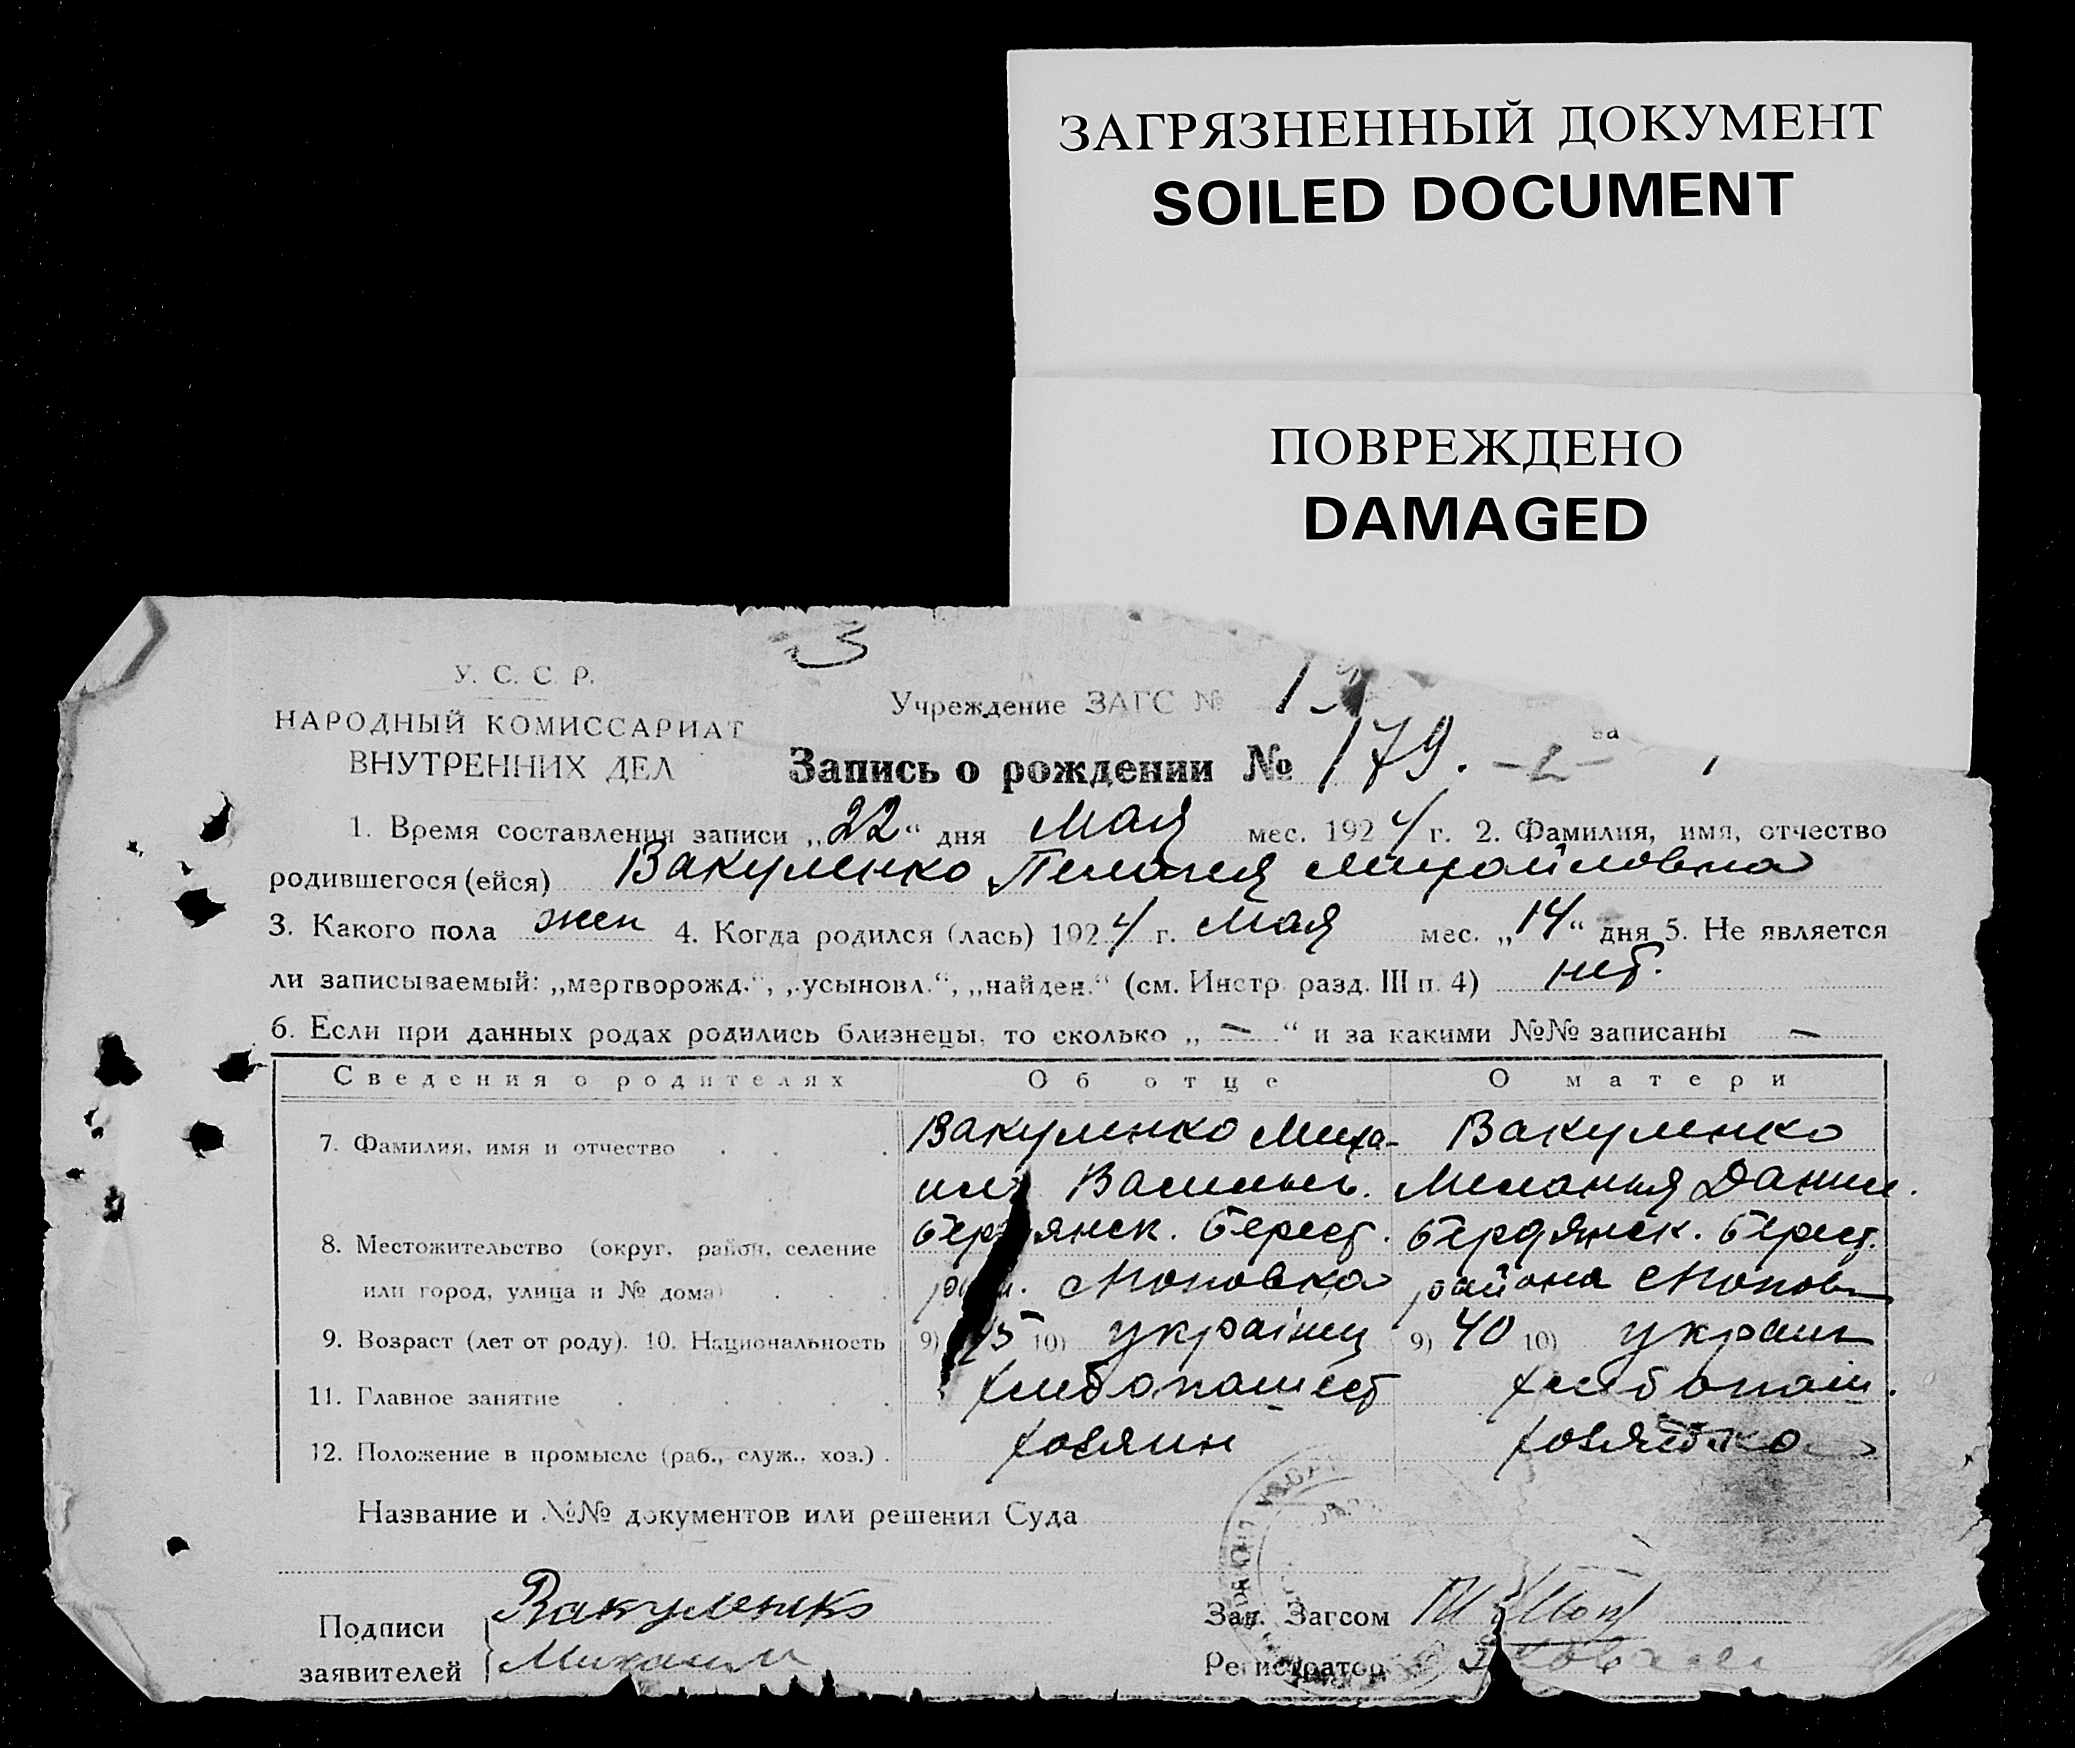 ЗАГРЯЗНЕННЫЙ ДОКУМЕНТ
SOILED DOCUMENT
ПОВРЕЖДЕНО
DAMAGED
3
У. С. С. Р.
НАРОДНЫЙ КОМИССАРИАТ
ВНУТРЕННИХ ДЕЛ
Учреждение ЗАГС №
Запись о рождении № 179. -2- за
1. Время составления записи „22“ дня Мая мес. 1924 г. 2. Фамилия, имя, отчество
родившегося (ейся) Вакуленко Пелагея Михайловна
3. Какого пола жен 4. Когда родился (лась) 1924 г. Мая мес. „14“ дня 5. Не является
ли записываемый: „мертворожд.“, „усыновл.“, „найден.“ (см. Инстр. разд. III п. 4) нет.
6. Если при данных родах родились близнецы, то сколько „ — “ и за какими №№ записаны —
Сведения о родителях Об отце О матери
7. Фамилия, имя и отчество Вакуленко Миха- Вакуленко
ил Василь. Меланья Данил.
8. Местожительство (округ, район, селение Бердянск. Берест. Бердянск. Берест.
или город, улица и № дома) Поповка района Попов
9. Возраст (лет от роду). 10. Национальность 9) 5 10) украінец 9) 40 10) украин
11. Главное занятие хлебопашест хлебопаш.
12. Положение в промысле (раб., служ., хоз.) хозяин хозяйка
Название и №№ документов или решения Суда
Подписи Вакуленко
заявителей Михаил
Зав. Загсом
Регистратор